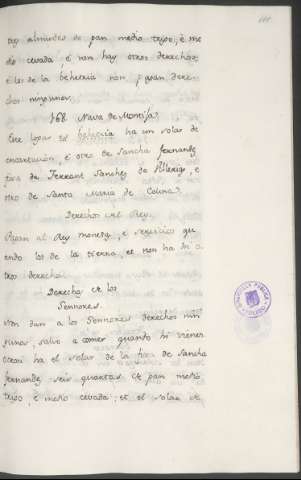 tas almudes de pan medio trigo, é me
dio cevada, é non hay otros derechos;
é los de la behetria non pagan dere
chos ningunos.
168. Nava de
Este logar es behetria ha un solar de
encartacion, é otro de Sancha Fernandez
fixa de Ferrant Sanchez de é
otro de Santa Maria de
Derechos del Rey.
Pagan al Rey moneda, é servicios qu
ando los de la tierra, et non ha hi o
tros derechos.
Derechos de los
Sennores.
Non dan a los Sennores derechos nin
gunos, salvo a comer quando hi vienen
ha el solar de la fixa de Sancha
Fernandez seis quartas de pan medio
trigo, é medio cevada; et el solar de